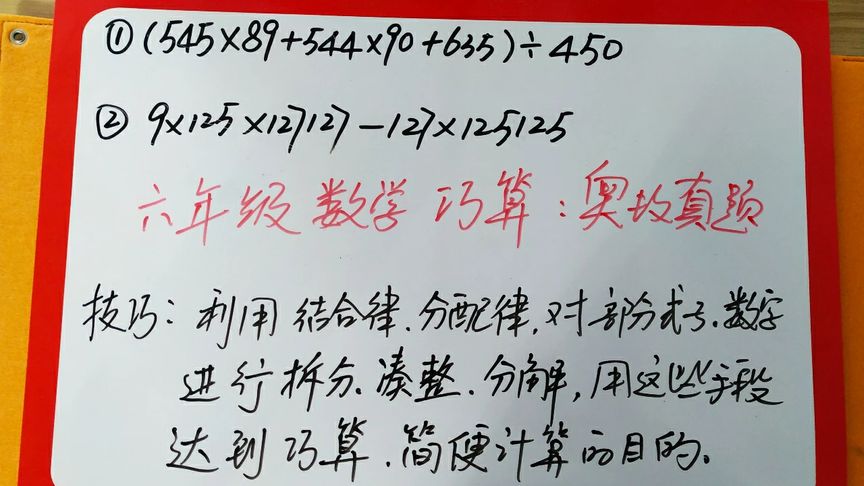 ① (545×89+544×90+635)÷450
② 9×125×127127-127×125125
六年级数学巧算:奥数真题
技巧:利用结合律、分配律,对部分式子、数字
进行拆分、凑整、分解,用这些手段
达到巧算、简便计算的目的。